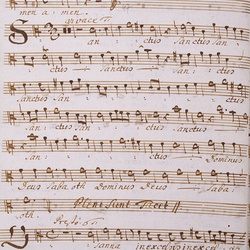 men a men.
San ctus Sanctus San
ctus Sanctus San ctus
Sanctus San ctus
San ctus San ctus
San ctus Dominus
Deus Sabaoth Dominus Deus Saba
oth. Pleni Sunt Tacet
Osanna in excelsis in excel